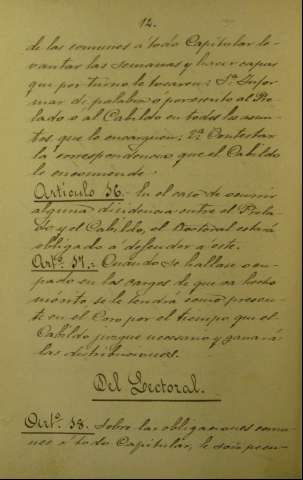 12.
de las comunes á todo Capitular le-
vantar las semanas y hacer capas
que por turno le tocaren: 1º Infor
mar de palabra ó por escrito al Pre
lado ó al Cabildo en todos los asun-
tos que le encarguen: 2ª Contestar
la correspondencia que el Cabildo
le encomiende.
Artículo 56.- En el caso de ocurrir
alguna disidencia entre el Prela-
do y el Cabildo, el Doctoral estará
obligado á defender á éste.
Artº. 57.- Cuando se hallase ocu-
pado en los cargos de que se ha hecho
mérito, se le tendrá como presen-
te en el Coro por el tiempo que el
Cabildo juzgue necesario y ganará
las distribuciones.
Del Lectoral.
Artº. 58. Sobre las obligaciones comu-
nes á todo Capitular, le son pecu-